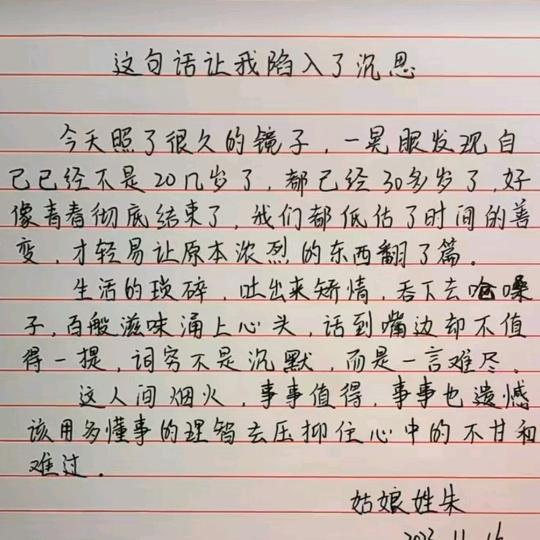 这句话让我陷入了沉思
今天照了很久的镜子，一晃眼发现自
己已经不是20几岁了，都已经30多岁了，好
像青春彻底结束了，我们都低估了时间的善
变，才轻易让原本浓烈的东西翻了篇。
生活的琐碎，吐出来矫情，吞下去呛嗓
子，百般滋味涌上心头，话到嘴边却不值
得一提，词穷不是沉默，而是一言难尽。
这人间烟火，事事值得，事事也遗憾
该用多懂事的理智去压抑住心中的不甘和
难过。
姑娘姓朱
2023.11.16